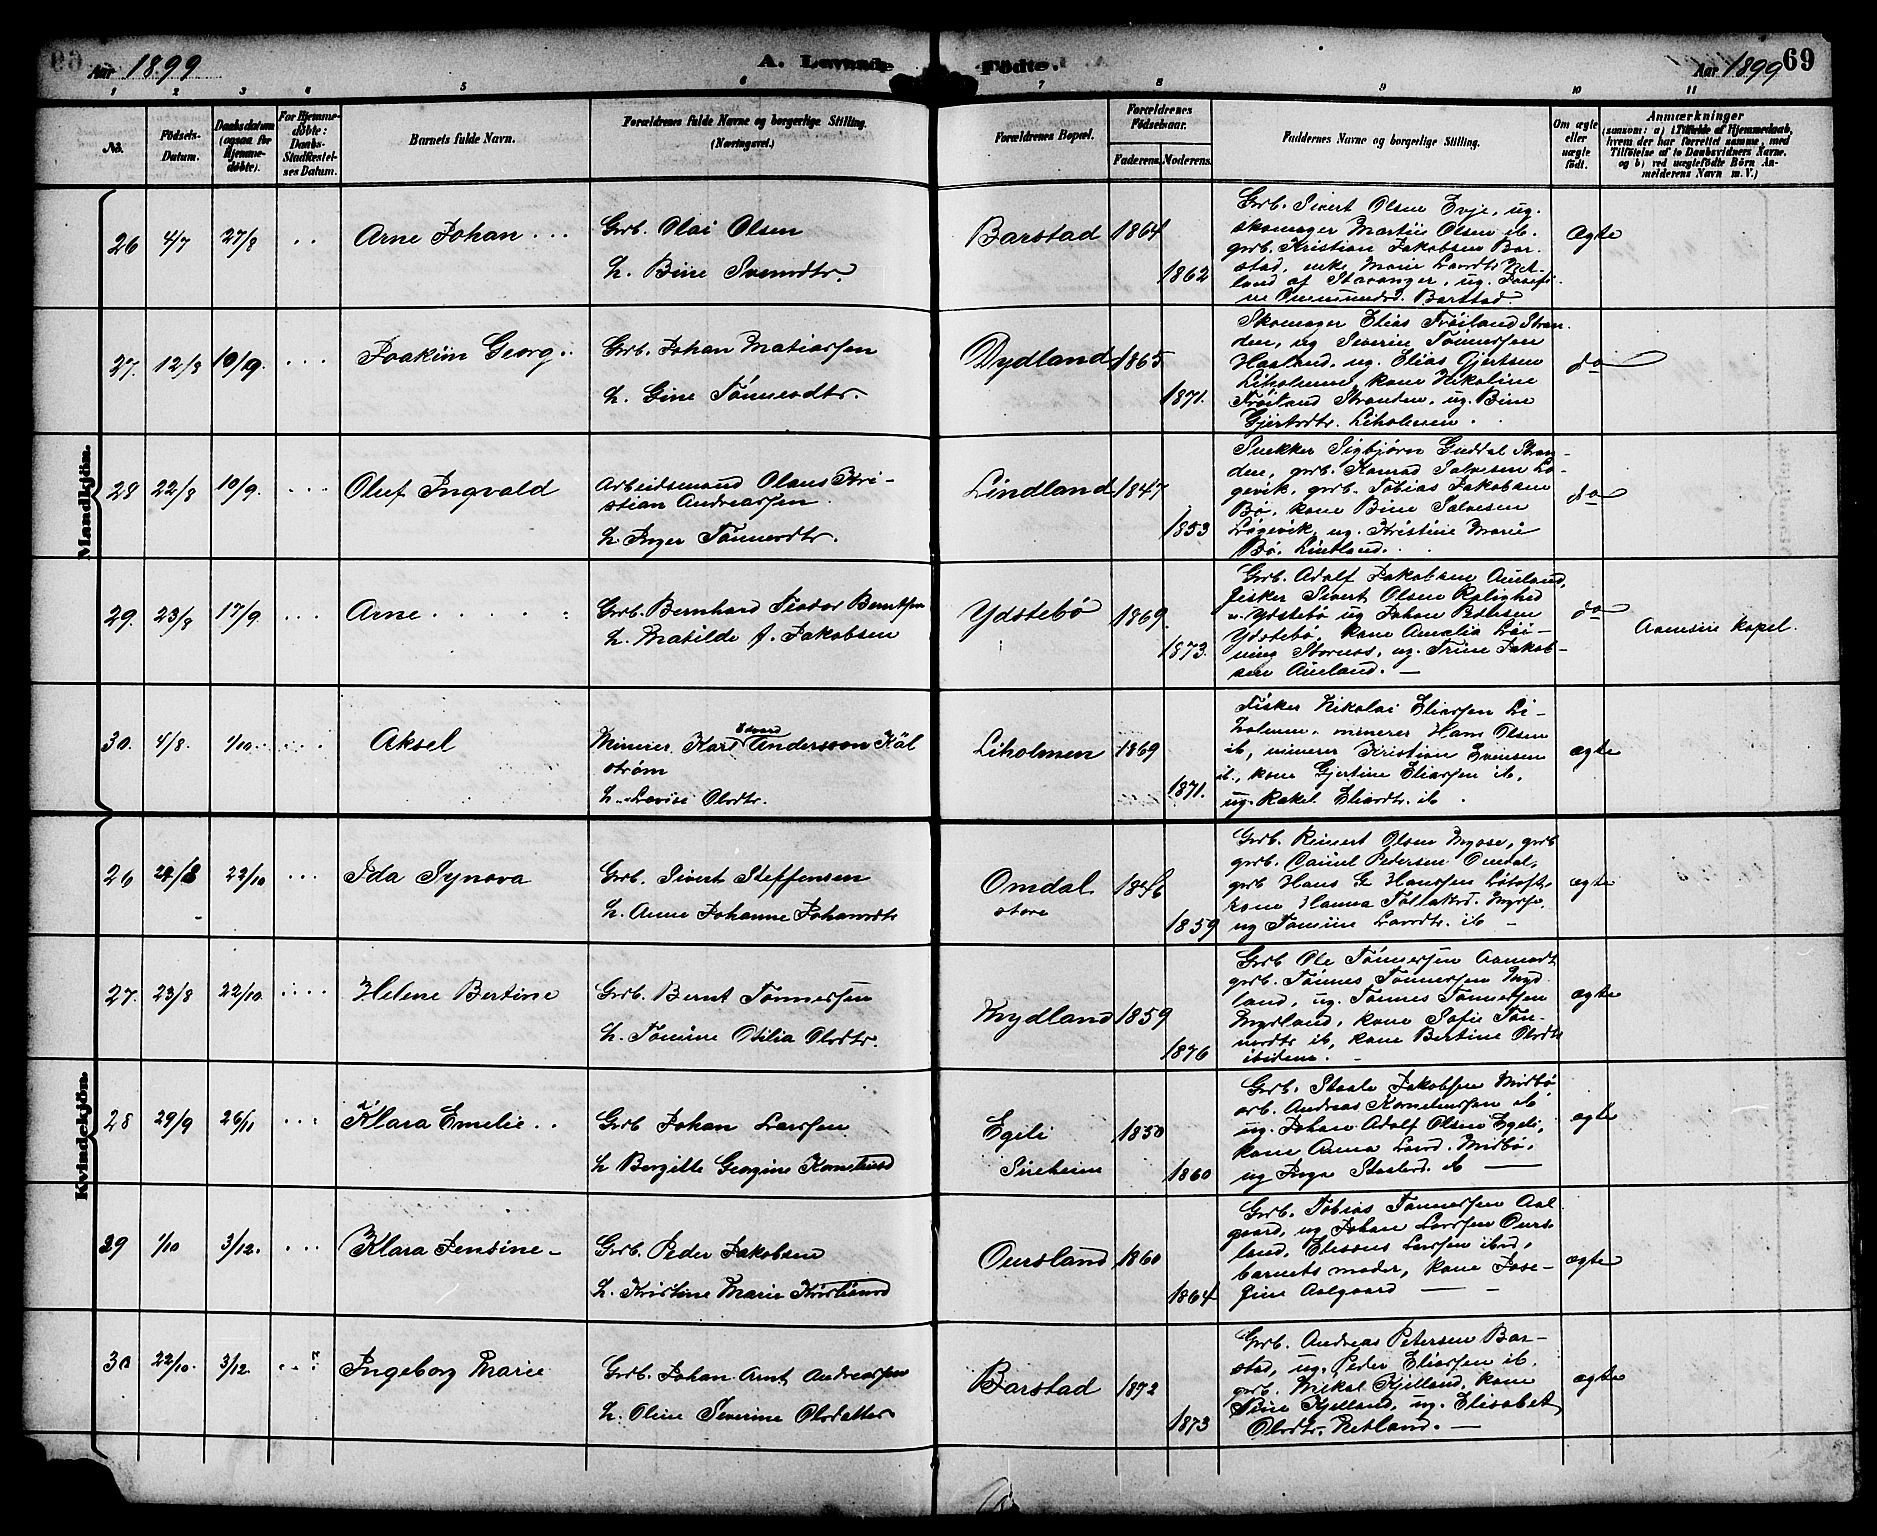 69
Aar 1899
A. Levende
Födte.
Aar 1899
1 2 3 4 5 6 7 8 9 10 11
No.
Födsels-
Datum.
Daabsdatum
(ogsaa for
Hjemme-
döbte).
For Hjemme-
döbte:
Daabs-
Stadfæstel-
ses Datum.
Barnets fulde Navn.
Forældrenes fulde Navne og borgerlige Stilling.
(Næringsvei.)
Forældrenes Bopæl.
Forældrenes
Födselsaar.
Faderens. Moderens.
Faddernes Navne og borgerlige Stilling.
Om ægte
eller
uægte
födt.
Anmærkninger
(saasom: a) i Tilfælde af Hjemmedaab,
hvem der har forrettet samme, med
Tilföielse af to Daabsvidners Navne,
og b) ved uægtefödte Börn An-
melderens Navn m. V.)
Mandkjön.
26 4/7 27/8 Arne Johan
Grb. Olai Olsen
h. Bine Svendtr.
Barstad 1864
1862
Grb. Sivert Olsen Evje, ug.
skomager Martin Olsen ib.
grb. Kristian Jakobsen Bar-
stad, enke Marie Larsdtr Net-
land af Stavanger, ug. Josefi-
ne Barstad
Ægte
27. 12/8 10/9. Joakim Georg
Grb. Johan Matiassen
h. Gine Tönnesdtr.
Dydland 1865
1871.
Skomager Elias Tröiland Stran-
den, ug Severin Tönnessen
Haaland, ug. Elias Gjertsen
Liholmen, kone Nikoline
Tröiland Stranden, ug. Bine
Gjertsdtr. Liholmen.
do
28 22/8 10/9. Oluf Ingvald
Arbeidsmand Olaus Kri-
stian Andreassen
h Inger Tönnesdtr.
Lindland 1847
1853
Snekker Sigbjörn Guddal Stran-
den, grb. Konrad Salvesen Lö-
gevik, grb. Tobias Jakobsen
Bö, kone Bine Salvesen
Lögevik, ug. Kristine Marie
Bö, Lindland.
do
29. 23/8 17/9. Arne
Grb. Bernhard Teodor Berntsen
h. Matilde f. Jakobsen
Ydstebö 1869.
1873.
Grb. Adolf Jakobsen Aaeland,
fisker Sivert Olsen Rolighed
Ydstebö ug Johan
Ydstebö, kone Amalia
Stornes, ug. Trine Jakob-
sen Aaeland.
do
Aamsin kapel.
30. 4/8. 1/10. Aksel
Minerer Karl Edvard Andersson Käl
ström
h. Lovise Olsdtr.
Liholmen 1869
1871.
Fisker Nikolai Eliassen Li-
holmen, minerer Hans Olsen
ib, minerer Kristian Svensen
ib., kone Gjertine Eliassen ib,
ug. Rakel Eliasdtr. ib.
ægte
Kvindekjön.
26 24/8 22/10 Ida Synova
Grb. Sivert Steffensen
h. Anne Johanne Johansdtr
Omdal
store
1846
1859
Grb. Reinert Olsen Mysse, grb
grb. Daniel Pedersen Omdal,
grb Hans G Hanssen Lötoft,
kone Hanna Tollaksd. Mysse,
ug Tomine Larsdtr. ib
ægte
27. 23/8 22/10. Helene Bertine
Grb. Bernt Tönnessen
h. Tomine Otilia Olsdtr.
Mydland 1859
1876
Grb Ole Tönnessen Aamodt
grb. Tönnes Tönnessen Myd-
land, ug. Tönnes Tönnessen
Mydland, kone Sofie Tön-
nesdtr ib, kone Bertine Olsdtr
ibidem.
ægte
28 29/9 26/11 Klara Emelie
Grb Johan Larssen
h Bergitte Georgine Korneliusd
Egeli
Sireheim
1850
1860
Grb. Staale Jakobsen Midbö
arb. Andreas Korneliussen ib
ug. Johan Adolf Olsen Egeli,
kone Anna Larsd. Midbö,
ug Inga Staalesd. ib
ægte
29 1/10 3/12. Klara Jensine
Grb. Peder Jakobsen
h. Kristine Marie Kristiansd
Oursland 1860
1864
Grb. Tobias Tönnessen Aal
gaard, ug Johan Larssen Ours-
land, Elessæus Larssen ibid,
barnets moder, kone Jose-
fine Aalgaard
ægte
30 22/10. 3/12. Ingeborg Marie
Grb. Johan Arnt Andreassen
h. Oline Severine Olsdatter
Barstad 1872
1873
Grb. Andreas Petersen Bar-
stad, ug. Peder Eliassen ib.
grb. Mikal Kjelland, kone
Sine Kjelland, ug. Elisabet
Olsdtr. Netland.
ægte